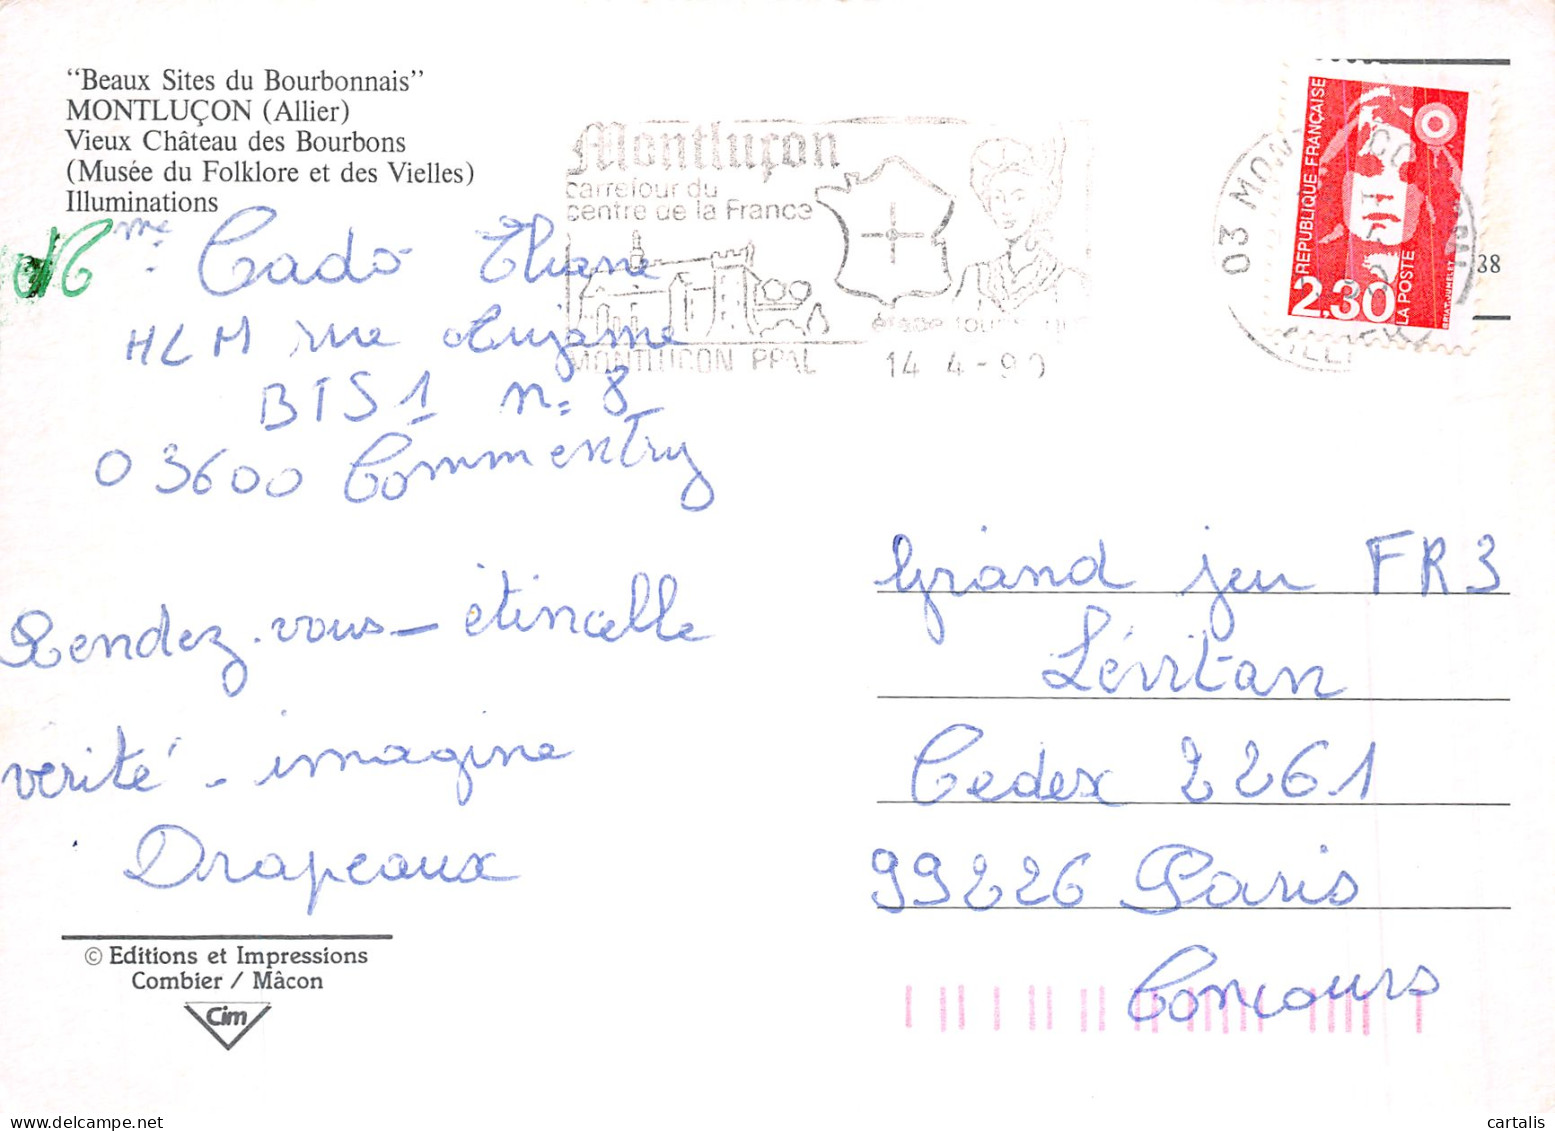 "Beaux Sites du Bourbonnais"
MONTLUÇON (Allier)
Vieux Château des Bourbons
(Musée du Folklore et des Vielles)
Illuminations
Montluçon
carrefour du
centre de la France
MONTLUCON PPAL
14 4-90
03
RÉPUBLIQUE FRANÇAISE
2,30
LA POSTE
38
Mme Cado Eliane
HLM rue
BTS1 n=8
03600 Commentry
Rendez-vous - étincelle
vérité - imagine
Drapeaux
Grand jeu FR3
Lévitan
Cedex 2261
99226 Paris
Concours
© Editions et Impressions
Combier / Mâcon
Cim
cartalis